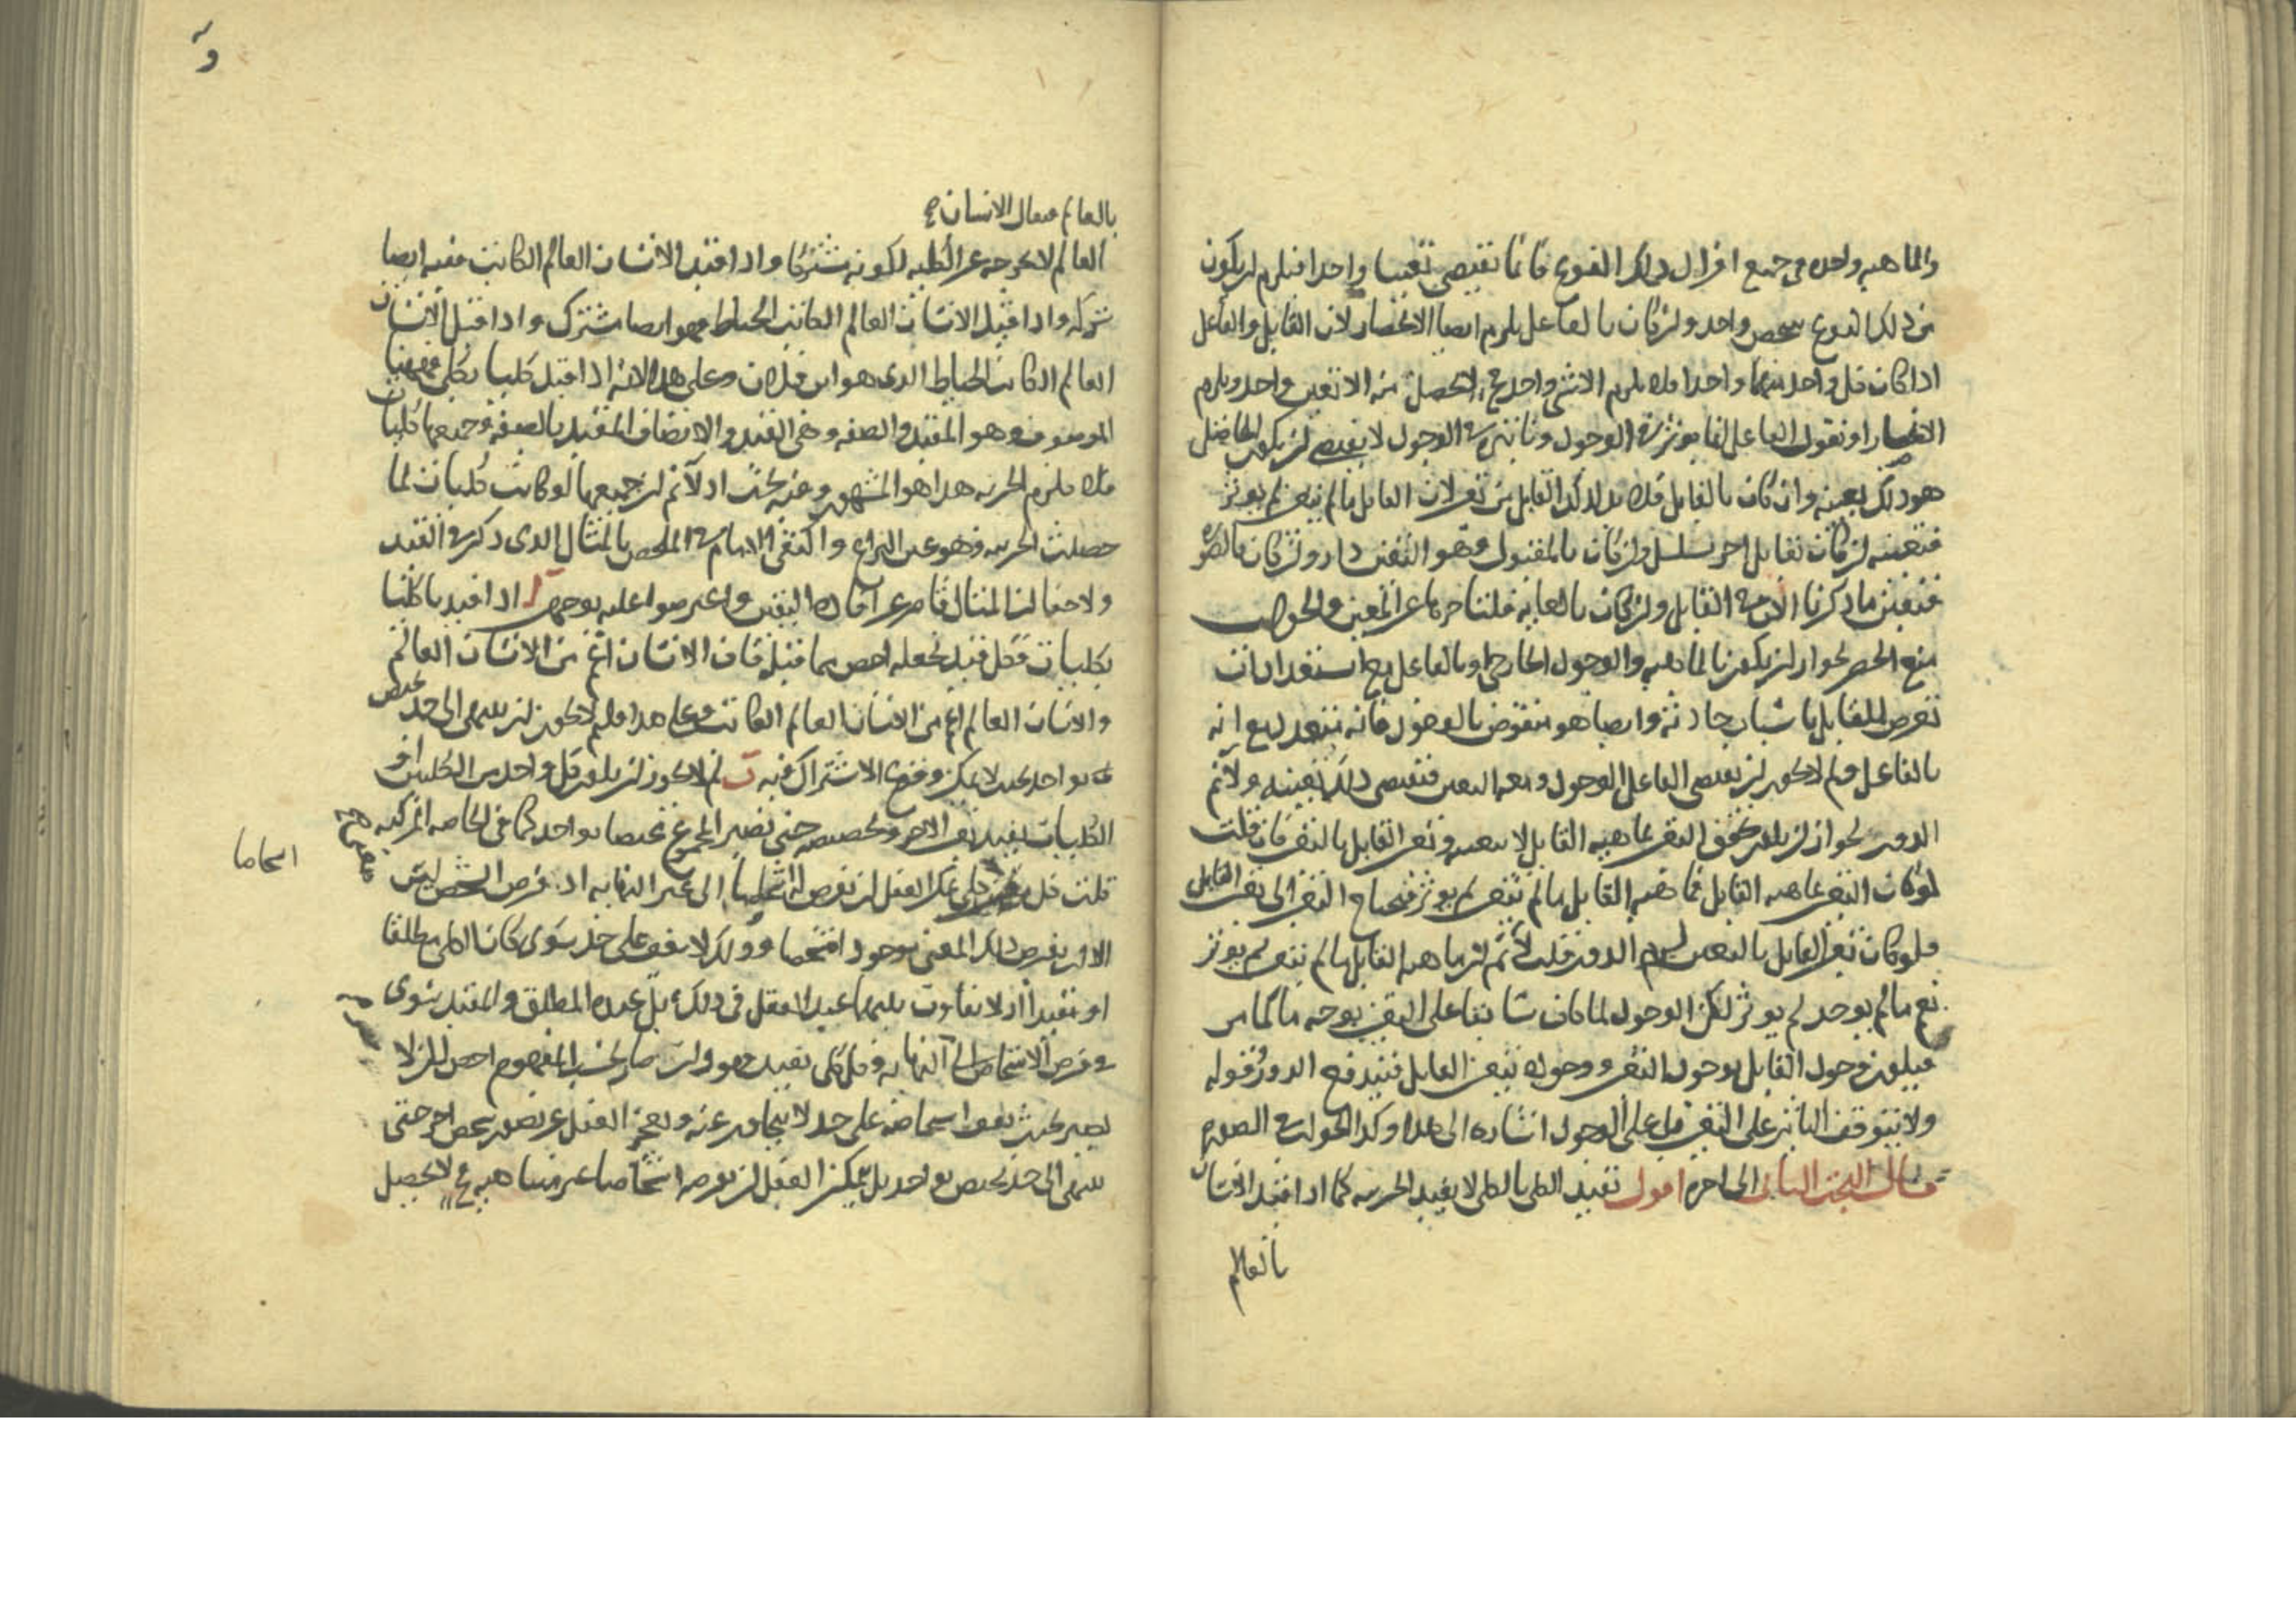 والماهيه واحده في جميع افراد دلك النوع فانما تقتضي تعينا واحدا فيلزم ان يكون
من ذلك النوع شخص واحد وان كان بالفاعل يلزم ايضا الانحصار لان القابل والفاعل
اذا كان كل واحد منهما واحدا فلا يلزم الا شي واحد فح لا يحصل منه الا تعين واحد ويلزم
الانحصار او نقول الفاعل انما يوثر في الوجود وتاثيره في الوجود لا يقتضي ان يكون الحاصل
هو ذلك بعينه وان كان بالقابل فلا بد لذلك القابل من تعين لان القابل ما لم يتعين لم يوثر
فتعينه ان كان بقابل اخر تسلسل وان كان بالمقبول وهو التعين دار وان كان بالصوره
فتعين ما ذكرنا الان في القابل وان كان بالغايه فلتاخرها عن المعين والجواب
منع الحصر لجواز ان يكون بالماهيه والوجود الخارجي او بالفاعل مع استعدادات
تعرض للقابل باسباب حادثه وايضا هو منقوض بالوجود فانه متعدد مع انه
بالفاعل ولم لا يجوز ان يقتضي الفاعل الوجود ومعه التعين فتقتضي ذلك بعينه ولا نم
الدور لجواز ان يلون تحقق التعين بماهيه القابل لا بتعينه وتعين القابل بالتعين فان قلت
لو كان التعين بماهيه القابل فماهيه القابل ما لم تتعين لم يوثر فيحتاج التعين الى تعين القابل
فلو كان تعين القابل بالتعين لزم الدور قلت لا نم ان ماهيه القابل ما لم تتعين لم يوثر
نعم ما لم يوجد لم يوثر لكن الوجود لما كان سابقا على التعين بوجه ما كما مر
فيلون وجود القابل بوجود التعين ووجوده بتعين القابل فيندفع الدور فقوله
ولا يتوقف التاثير على التعين بل على الوجود اشاره الى هذا وكذا الجواب في الصوره
قال البحث الثاني الى اخره اقول تقييد الكلي بالكلي لا يفيد الجزييه كما اذا قيد الانسان
بالعالم
بالعالم فيقال الانسان
العالم لا يخرجه عن الكليه لكونه مشتركا واذا قيد الانسان العالم الكاتب ففيه ايضا
شركه واذا قيد الانسان العالم الكاتب الخياط فهو ايضا مشترك واذا قيل الانسان
العالم الكاتب الخياط الذي هو ابن فلان وعلى هذا لانه اذا قيد كليا بكلي فههنا
الموصوف وهو المقيد والصفه وهي القيد والاتصاف المقيد بالصفه وجميعها كليات
فلا يلزم الجزييه هذا هو المشهور وفيه بحث اذ لا نم ان جميعها لو كانت كليات لما
حصلت الجزييه وهو عين النزاع واكتفى الامام في الملخص بالمثال الذي ذكر في القيد
ولا خفا ان المثال قاصر عن افاده اليقين واعترضوا عليه بوجهين ا اذا قيدنا كليا
بكليات فكل قيد يجعله اخص مما قيد فان الانسان اعم من الانسان العالم
والانسان العالم اعم من الانسان العالم الكاتب وعلى هذا فلم لا يجوز ان ينتهي الى حد يختص
بواحد بحيث لا يمكن وقوع الاشتراك فيه ب لم لا يجوز ان يلون كل واحد من الكليين او
الكليات يفيد تعين الاخر وتخصيصه حتى يصير المجموع مختصا بواحد كما في الخاصه المركبه
قلت كل كلي يمكن العقل ان يفرض له اشخاصا الى غير النهايه اذ فرض الشخص ليس
الا ان يفرض ذلك المعنى موجودا متشخصا وذلك لا يقف على حد سوى كان الكلي مطلقا
او مقيدا اذ لا تفاوت بينهما عند العقل في ذلك بل عنده المطلق والمقيد سوى
في فرض الاشخاص الى النهايه وكل كلي يقيد فهو وان صار بحسب المفهوم اخص لكن لا
يصير بحيث يقف اشخاصه على حد لا يتجاوز عنه ويعجز العقل عن تصور شخص اخر حتى
ينتهي الى حد يختص بواحد بل يمكن العقل ان يفرضه اشخاصا غير متناهيه فح لا يحصل
اشخاصا